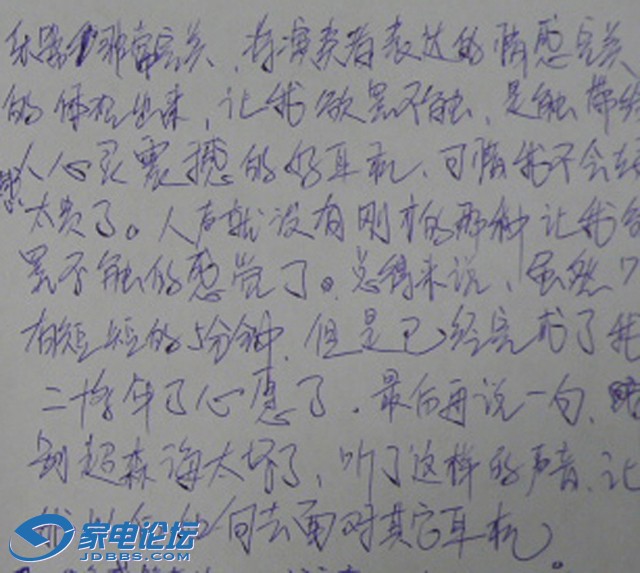 非常完美,将演奏者表达的情感完美
的体现出来,让我欲罢不能,是能带给
人心灵震撼的好耳机,可惜我不会
太贵了。人声就没有刚才的那种让我欲
罢不能的感觉了。总得来说,虽然只
有短短的5分钟,但是已经完成了我
二十年了心愿了,最后再说一句,
别超森海太坏了,听了这样的声音,让
我以后如何去面对其它耳机。
家电论坛
JDBBS.COM